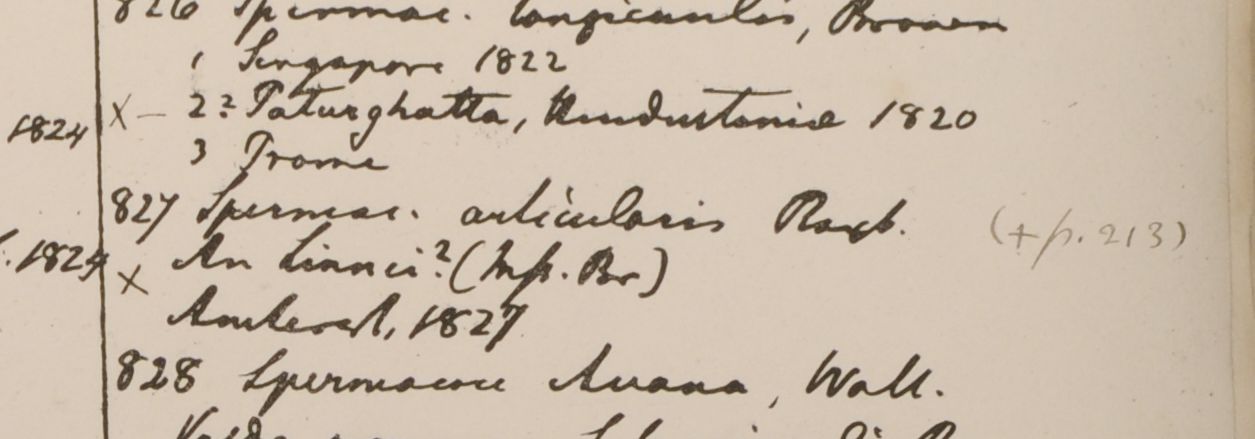 826 Spermac. longicaulis, Brown
1 Singapore 1822
X – 2? Paturghatta, Hindustaniæ 1820
1824
3 Prome
827 Spermac. articularis Roxb. (+ p. 213)
1824 X An Linnei? (Mss. Br)
Amherst, 1827
828 Spermacoce Avana, Wall.